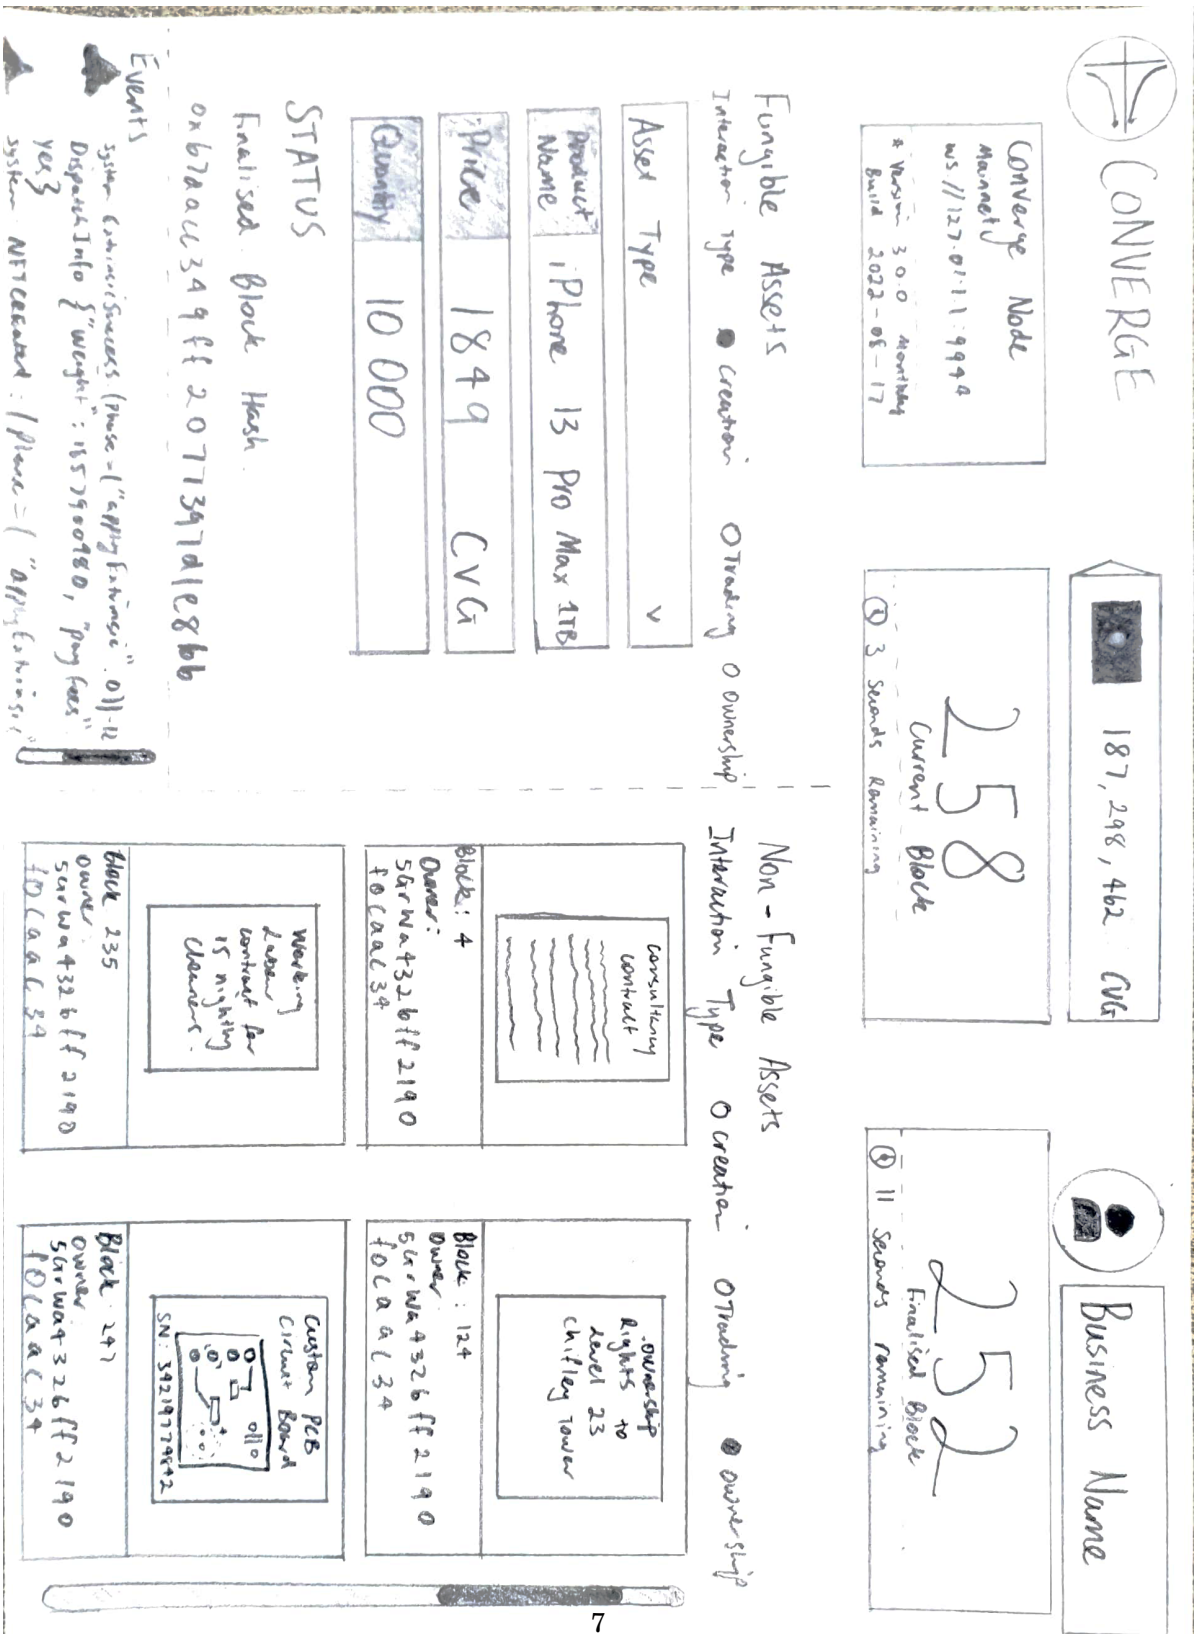 CONVERGE
187,298,462 CVG
Business Name
Converge Node
Mainnety
ws //127.01:11:9944
* Version 3.0.0 Monthly
Build 2022-08-17
258
Current Block
3 seconds Remaining
252
Finalised Block
11 seconds remaining
Fungible Assets
Interaction Type creation O Trading O ownership
Asset Type v
Product
Name iPhone 13 Pro Max 1TB
Price 1849 CVG
Quantity 10 000
STATUS
Finalised Block Hash.
0xb7aacc349ff2077397d1e86bb
Events
System ExtrinsicSuccess (Phase=("applyExtrinsic": 0)]-12
DispatchInfo {"weight": 1657900980, "pay fees"
yes}
system NFTcreated: [Phase=("applyExtrinsic"
Non-Fungible Assets
Interaction Type O creation O Trading ownership
consultancy
contract
Block: 4
Owner:
5GrWa4326ff2190
f0caac34
.ownership
Rights to
Level 23
Chifley Tower
Block: 124
Owner:
5GrWa4326ff2190
f0caac34
Working
Labour
contract for
15 nighting
cleaners.
block 235
owner:
5GrWa4326ff2190
f0caac34
Custom PCB
Circuit Board
SN: 34219779842
Block 247
owner:
5GrWa4326ff2190
f0caac34
7